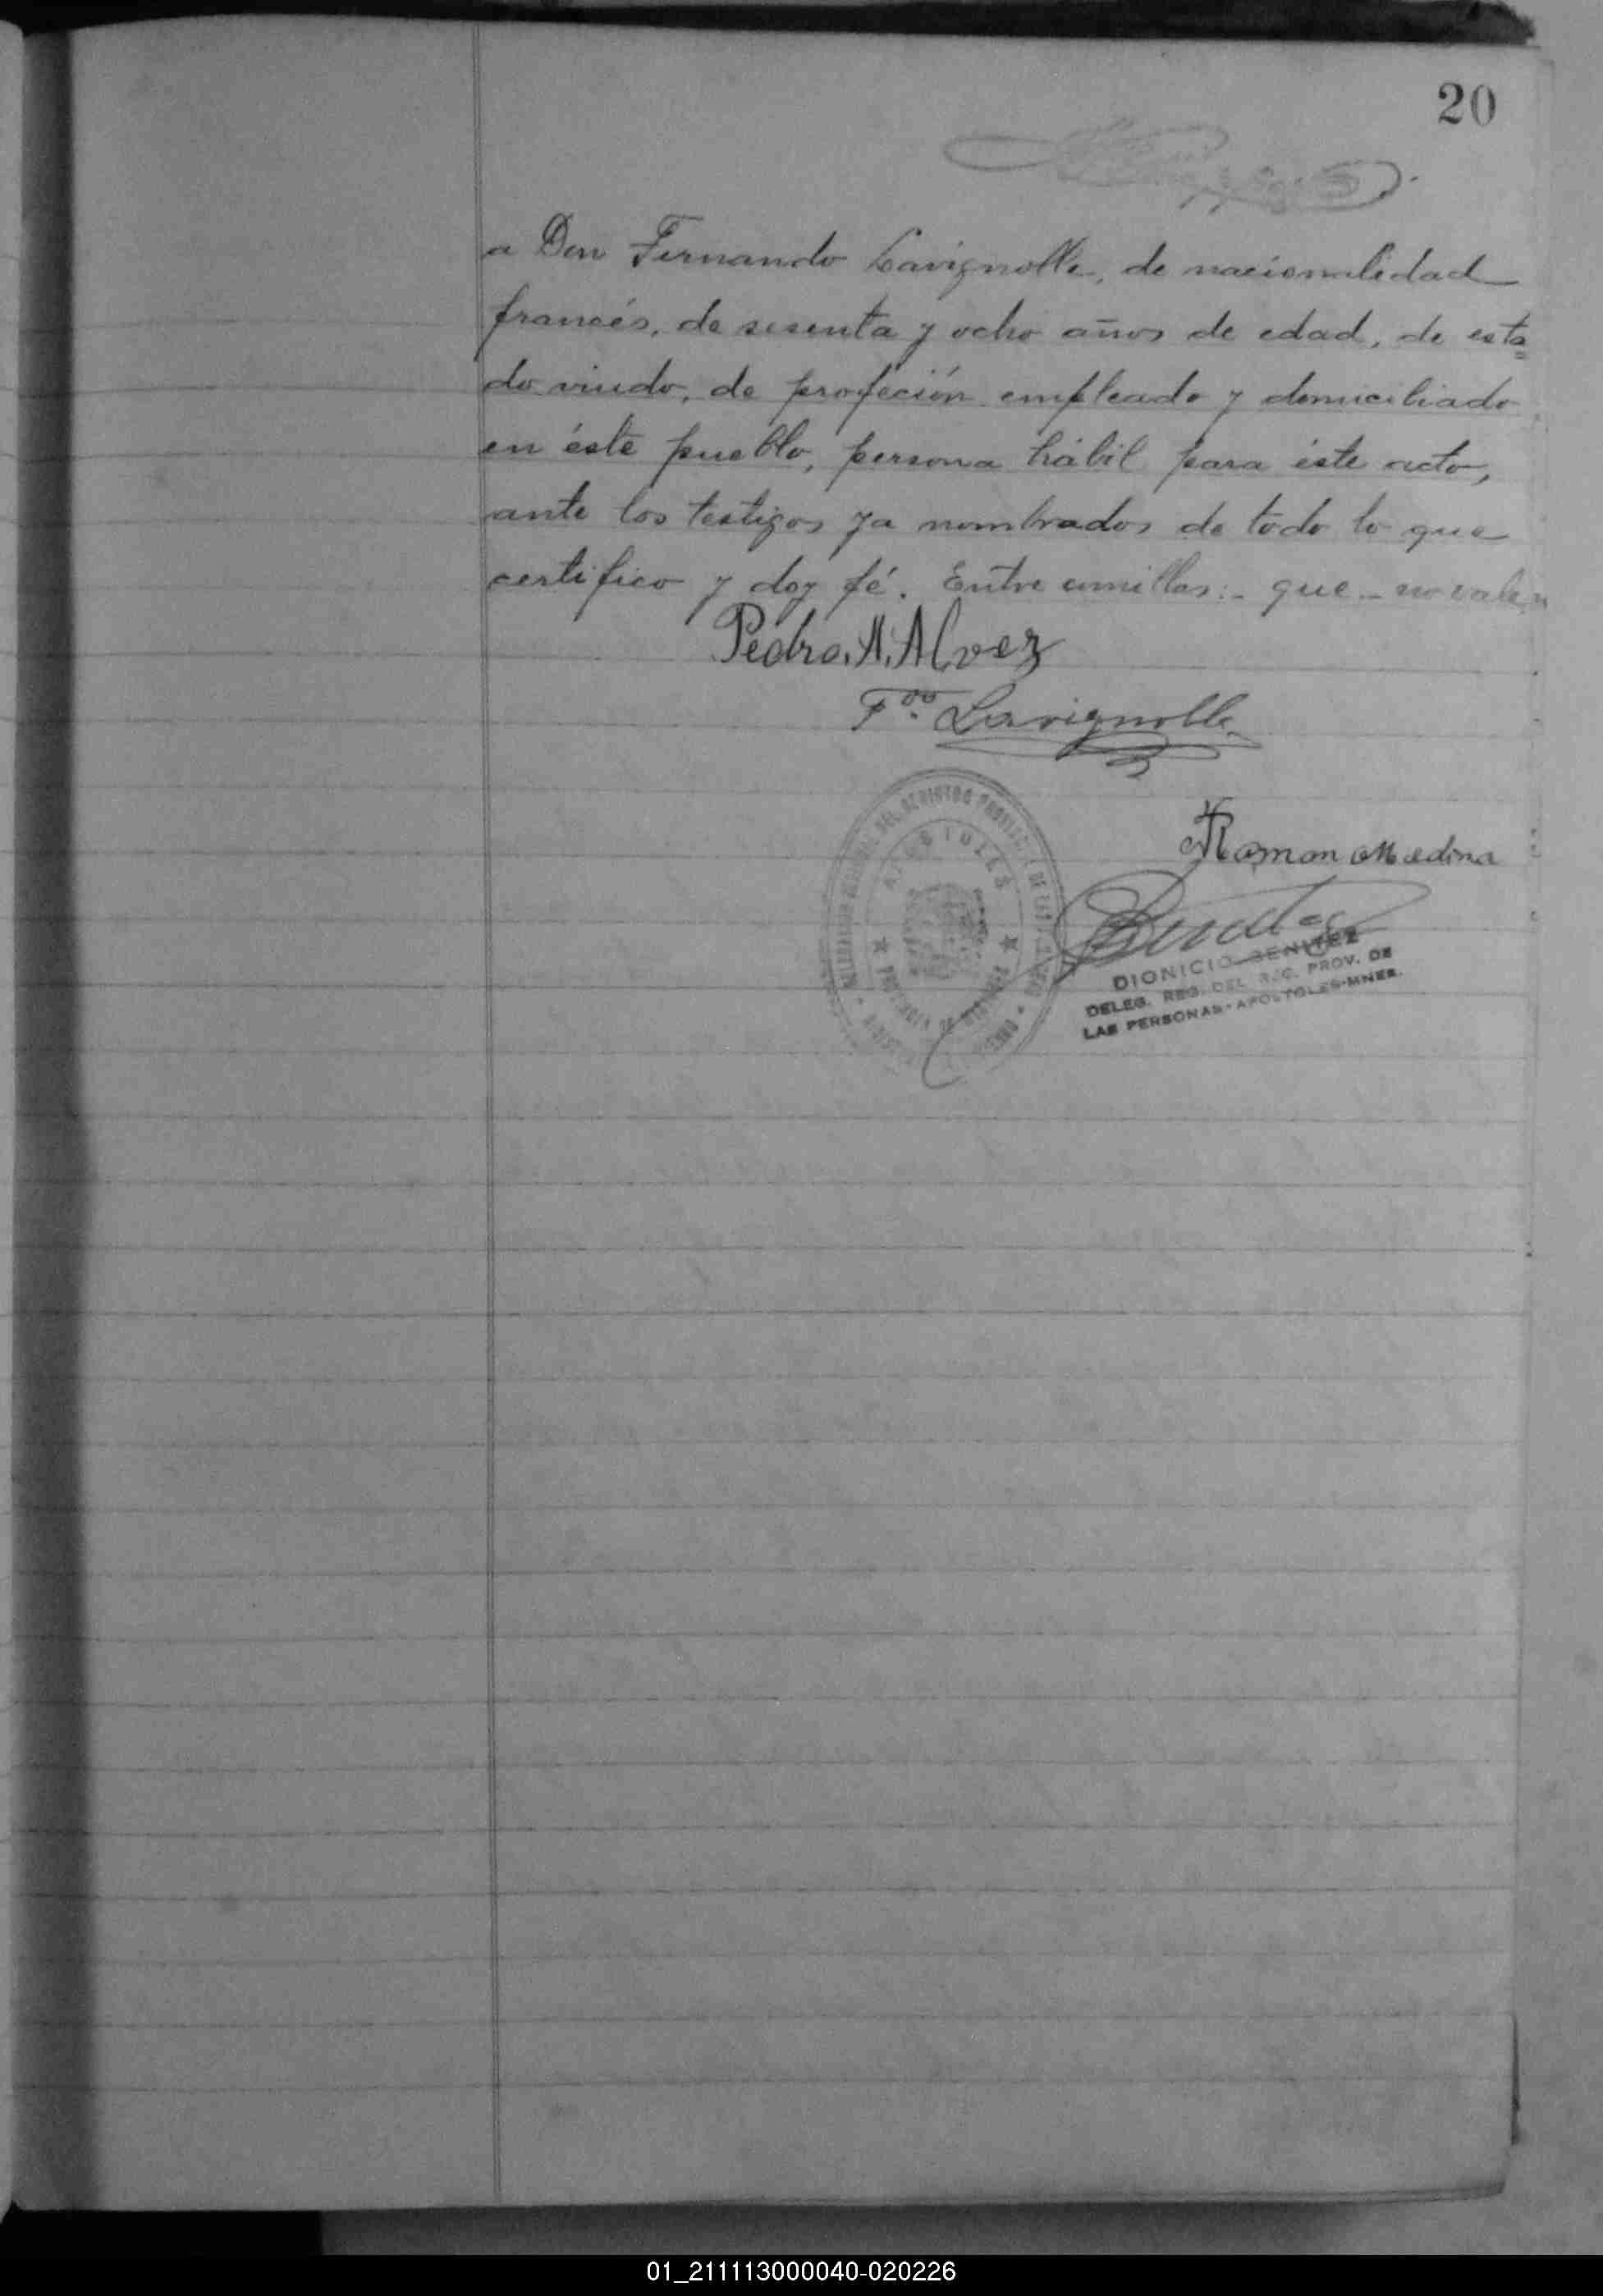 20
a Don Fernando Lavignolle, de nacionalidad
francés, de sesenta y ocho años de edad, de esta=
do viudo, de profeción empleado y domiciliado
en éste pueblo, persona hábil para éste acto,
ante los testigos ya nombrados de todo lo que
certifico y doy fé. Entre comillas:- que - no valen
Pedro. A. Alvez
F.do Lavignolle
Roman Medina
APOSTOLES
DIONICIO BENITEZ
DELEG. REG. DEL R.C. PROV. DE
LAS PERSONAS - APOSTOLES-MNES.
01_211113000040-020226